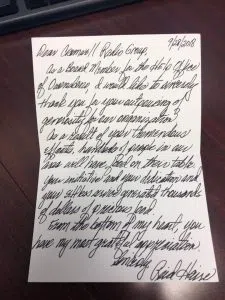 9/28/2018
Dear Cromwell Radio Group,
As a Board Member for the
of Owensboro, I would like to sincerely
thank you for your outpouring of
generosity for our organization!
As a result of your tremendous
efforts, hundreds of people in our
area will have food on their table.
Your initiative and your dedication and
your selfless efforts generated thousands
of dollars of precious food.
From the bottom of my heart, you
have my most grateful appreciation.
Sincerely,